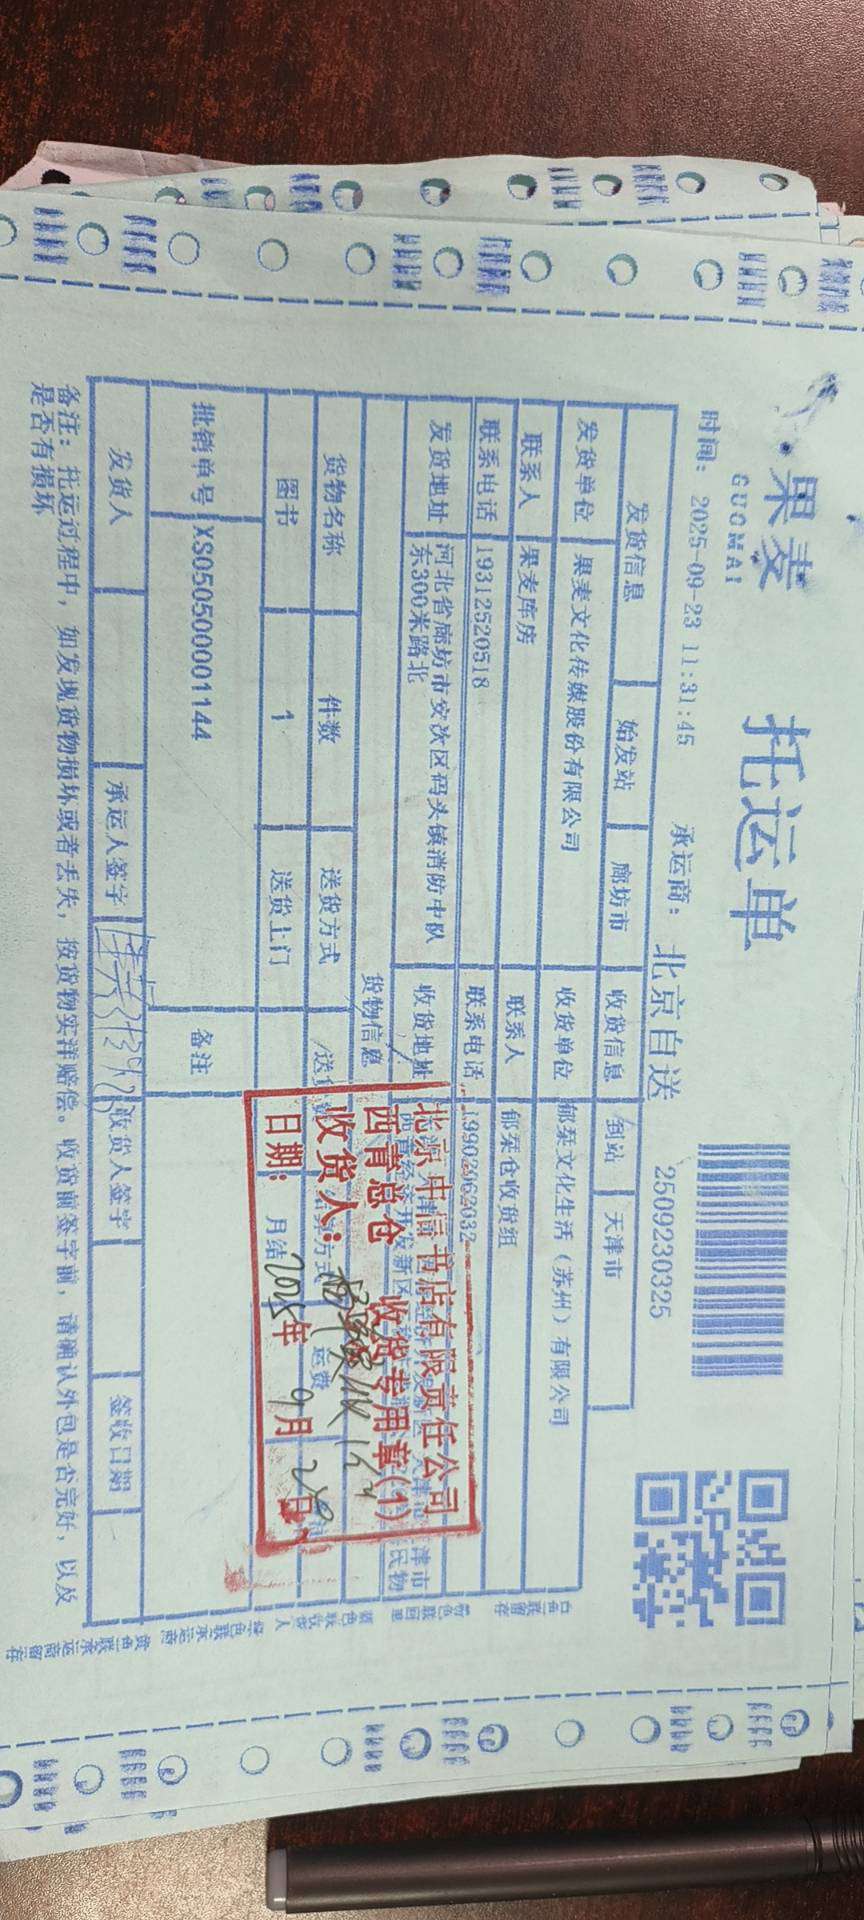 果麦
GUOMAI
托运单
2509230325
时间: 2025-09-23 11:31:45 承运商: 北京自送
发货信息 始发站 廊坊市 收货信息 到站 天津市
发货单位 果麦文化传媒股份有限公司 收货单位 郁栞文化生活（苏州）有限公司
联系人 果麦库房 联系人 郁栞仓收货组
联系电话 19312520518 联系电话 19902062032
发货地址 河北省廊坊市安次区码头镇消防中队
东300米路北 收货地址
货物信息
货物名称 件数 送货方式
图书 1 送货上门 月结
批销单号 XS050500001144 备注
发货人 承运人签字 收货人签字 签收日期
备注: 托运过程中, 如发现货物损坏或者丢失, 按货物实洋赔偿。收货前签字前, 请确认外包是否完好, 以及
是否有损坏
北京中信书店有限责任公司
西青总仓 收货专用章(1)
收货人:
日期: 2025年 9月